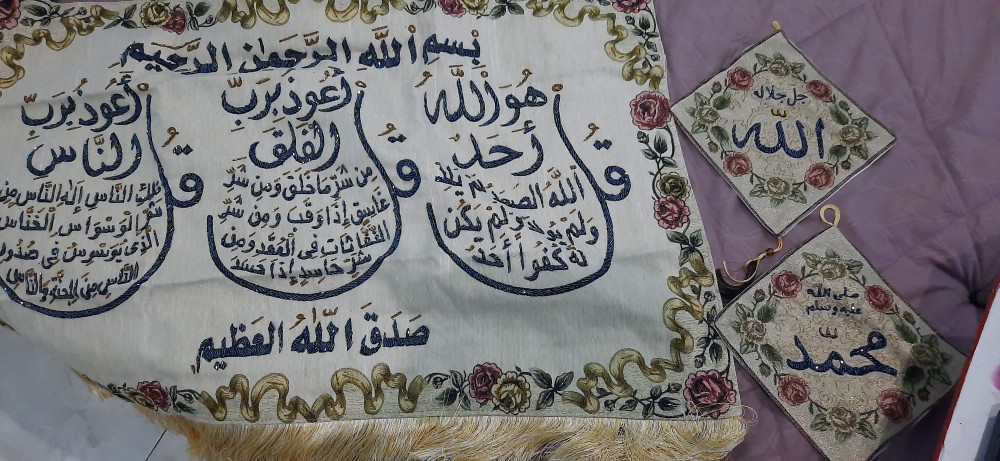 بِسْمِ اللَّهِ الرَّحْمَنِ الرَّحِيمِ
قُلْ هُوَ اللَّهُ
أَحَدٌ
اللَّهُ الصَّمَدُ لَمْ يَلِدْ
وَلَمْ يُولَدْ وَلَمْ يَكُنْ
لَهُ كُفُوًا أَحَدٌ
قُلْ أَعُوذُ بِرَبِّ
الْفَلَقِ
مِنْ شَرِّ مَا خَلَقَ وَمِنْ شَرِّ
غَاسِقٍ إِذَا وَقَبَ وَمِنْ شَرِّ
النَّفَّاثَاتِ فِي الْعُقَدِ وَمِنْ
شَرِّ حَاسِدٍ إِذَا حَسَدَ
قُلْ أَعُوذُ بِرَبِّ
النَّاسِ
مَلِكِ النَّاسِ إِلَهِ النَّاسِ مِنْ
شَرِّ الْوَسْوَاسِ الْخَنَّاسِ
الَّذِي يُوَسْوِسُ فِي صُدُورِ
النَّاسِ مِنَ الْجِنَّةِ وَالنَّاسِ
صَدَقَ اللَّهُ الْعَظِيمِ
جل جلاله
الله
صلى الله
عليه وسلم
محمد